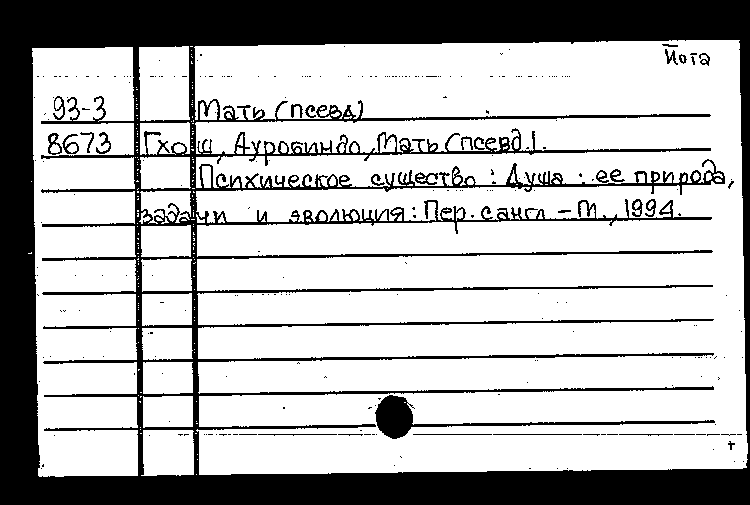 Йога
93-3 Мать (псевд)
8673 Гхош, Ауробиндо, Мать (псевд.).
Психическое существо : Душа : ее природа,
задачи и эволюция : Пер. с англ – М., 1994.